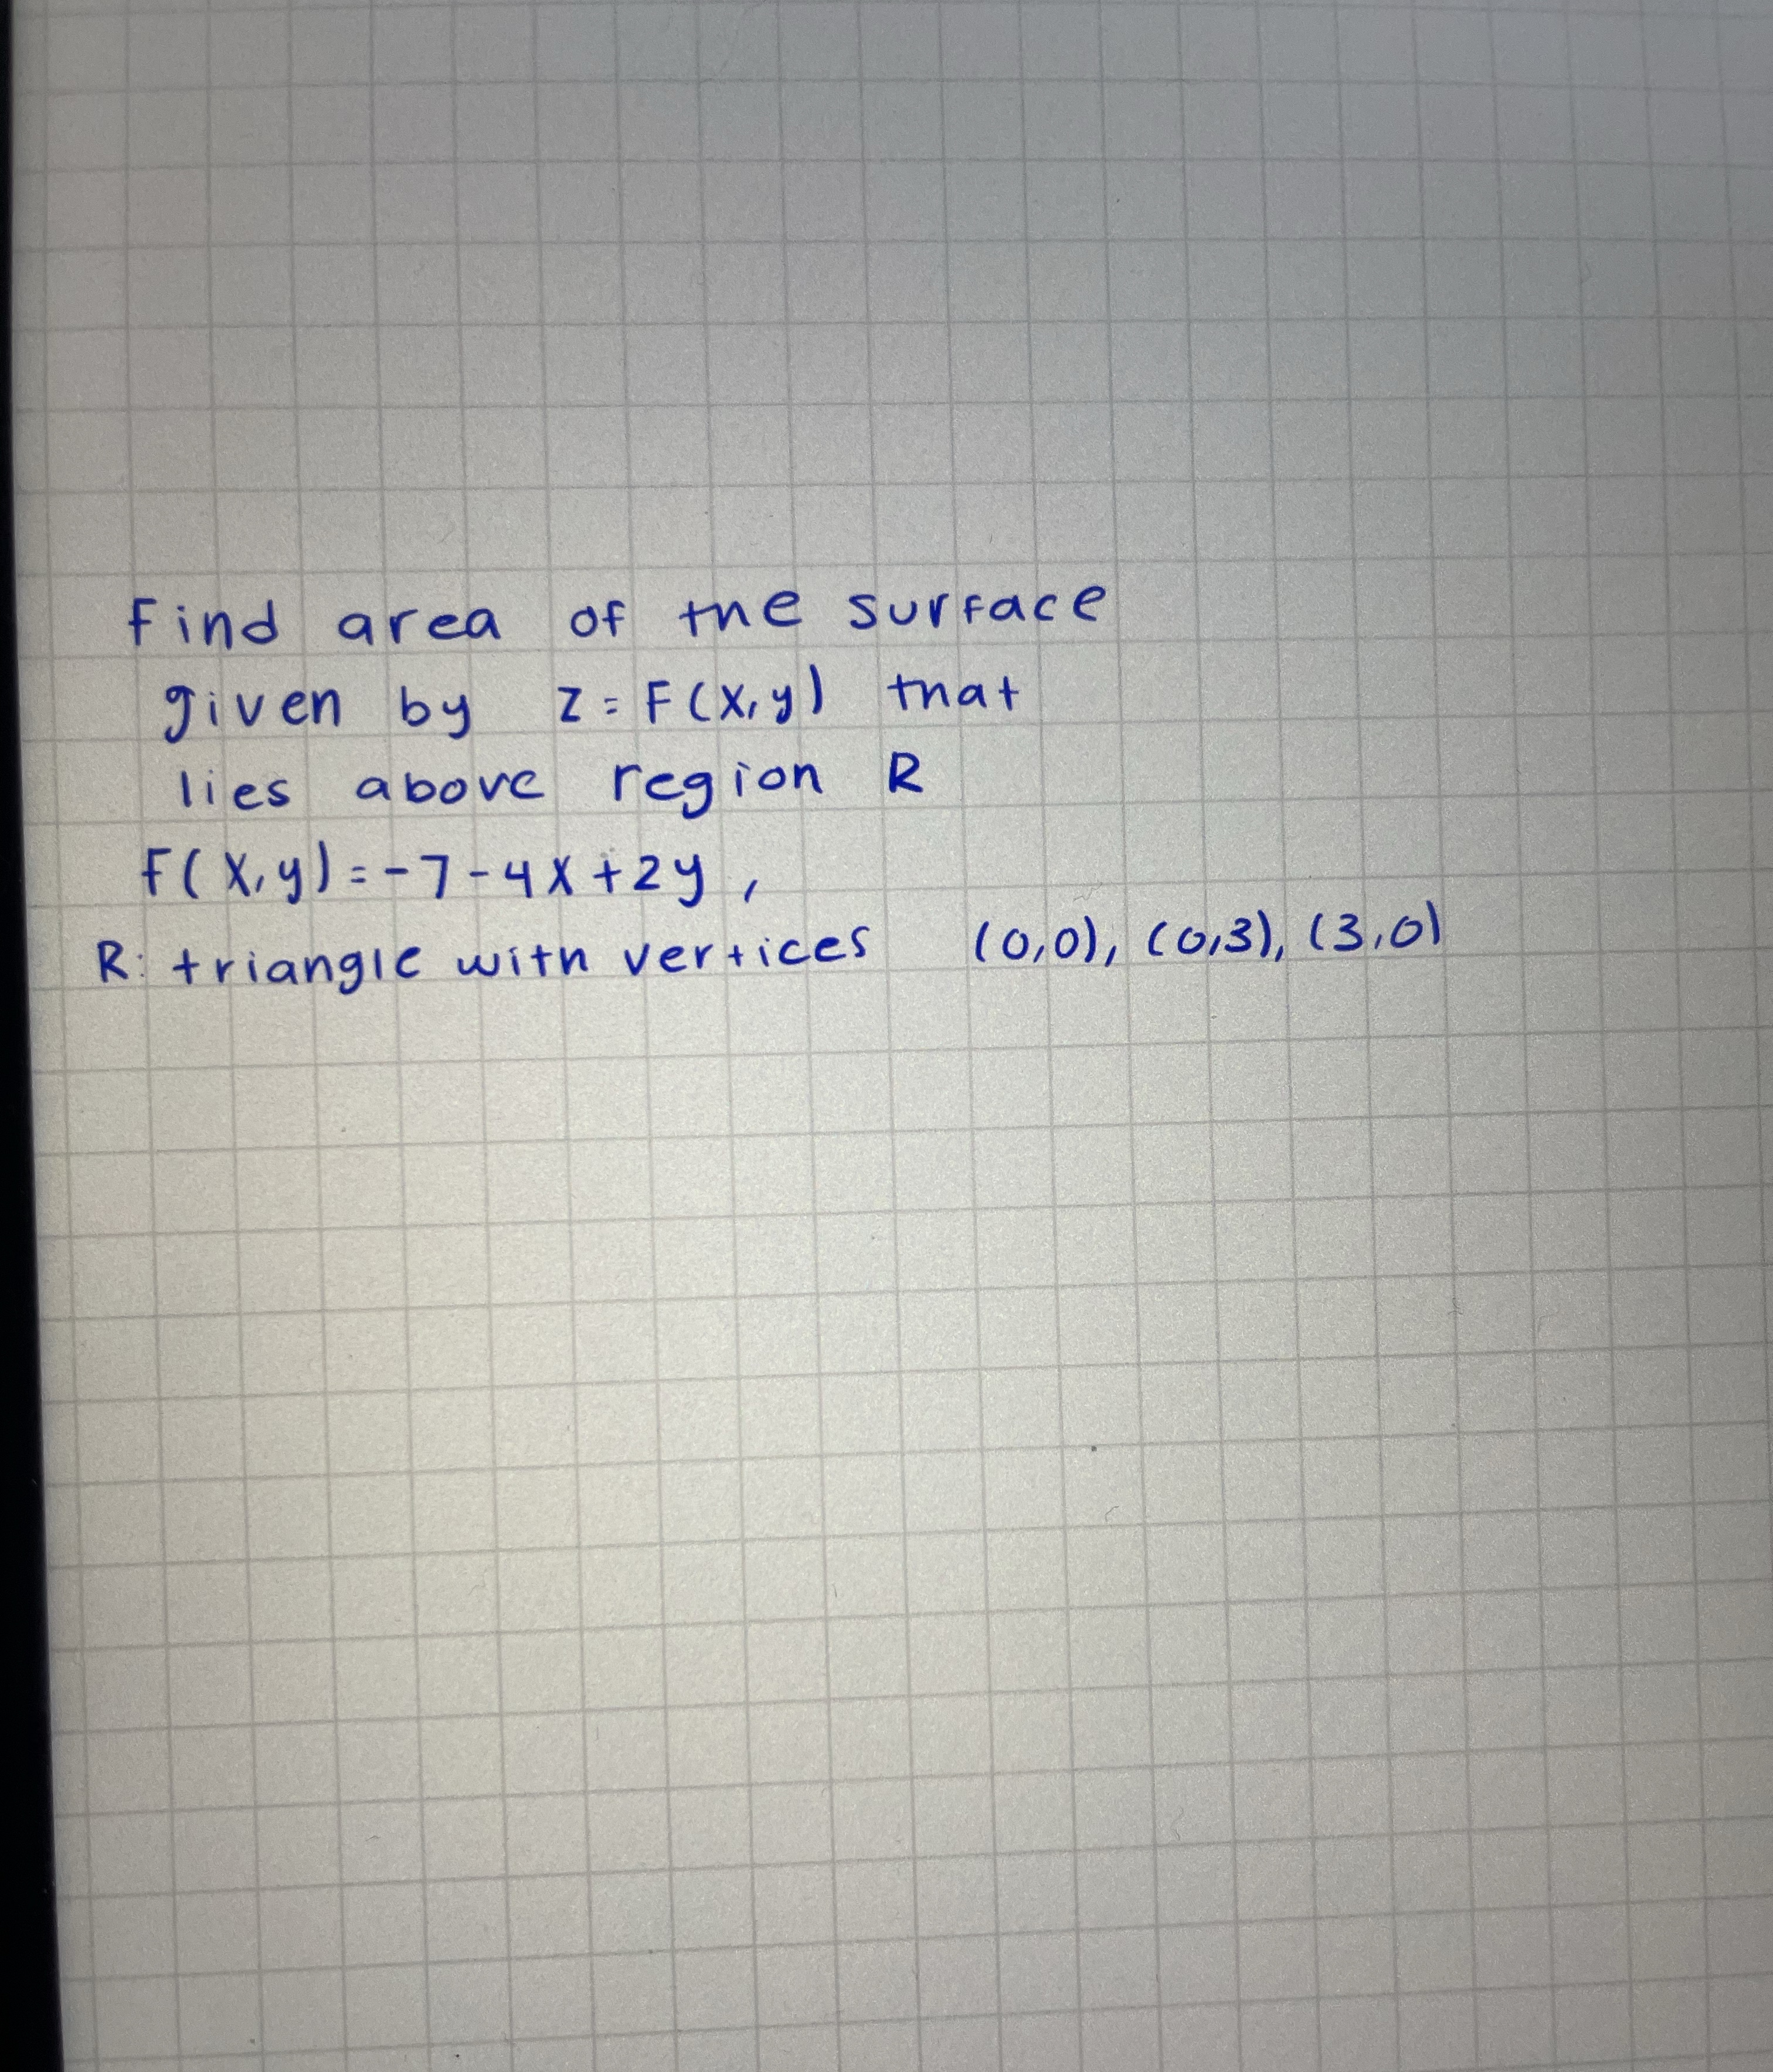 Find area of the surface
given by z = F(x,y) that
lies above region R
F(x,y) = -7-4x+2y,
R: triangle with vertices (0,0), (0,3), (3,0)